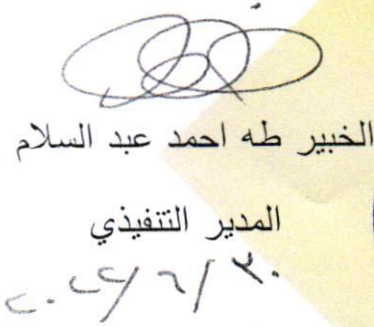 الخبير طه احمد عبد السلام
المدير التنفيذي
٢٠٢٤/٦/٣٠